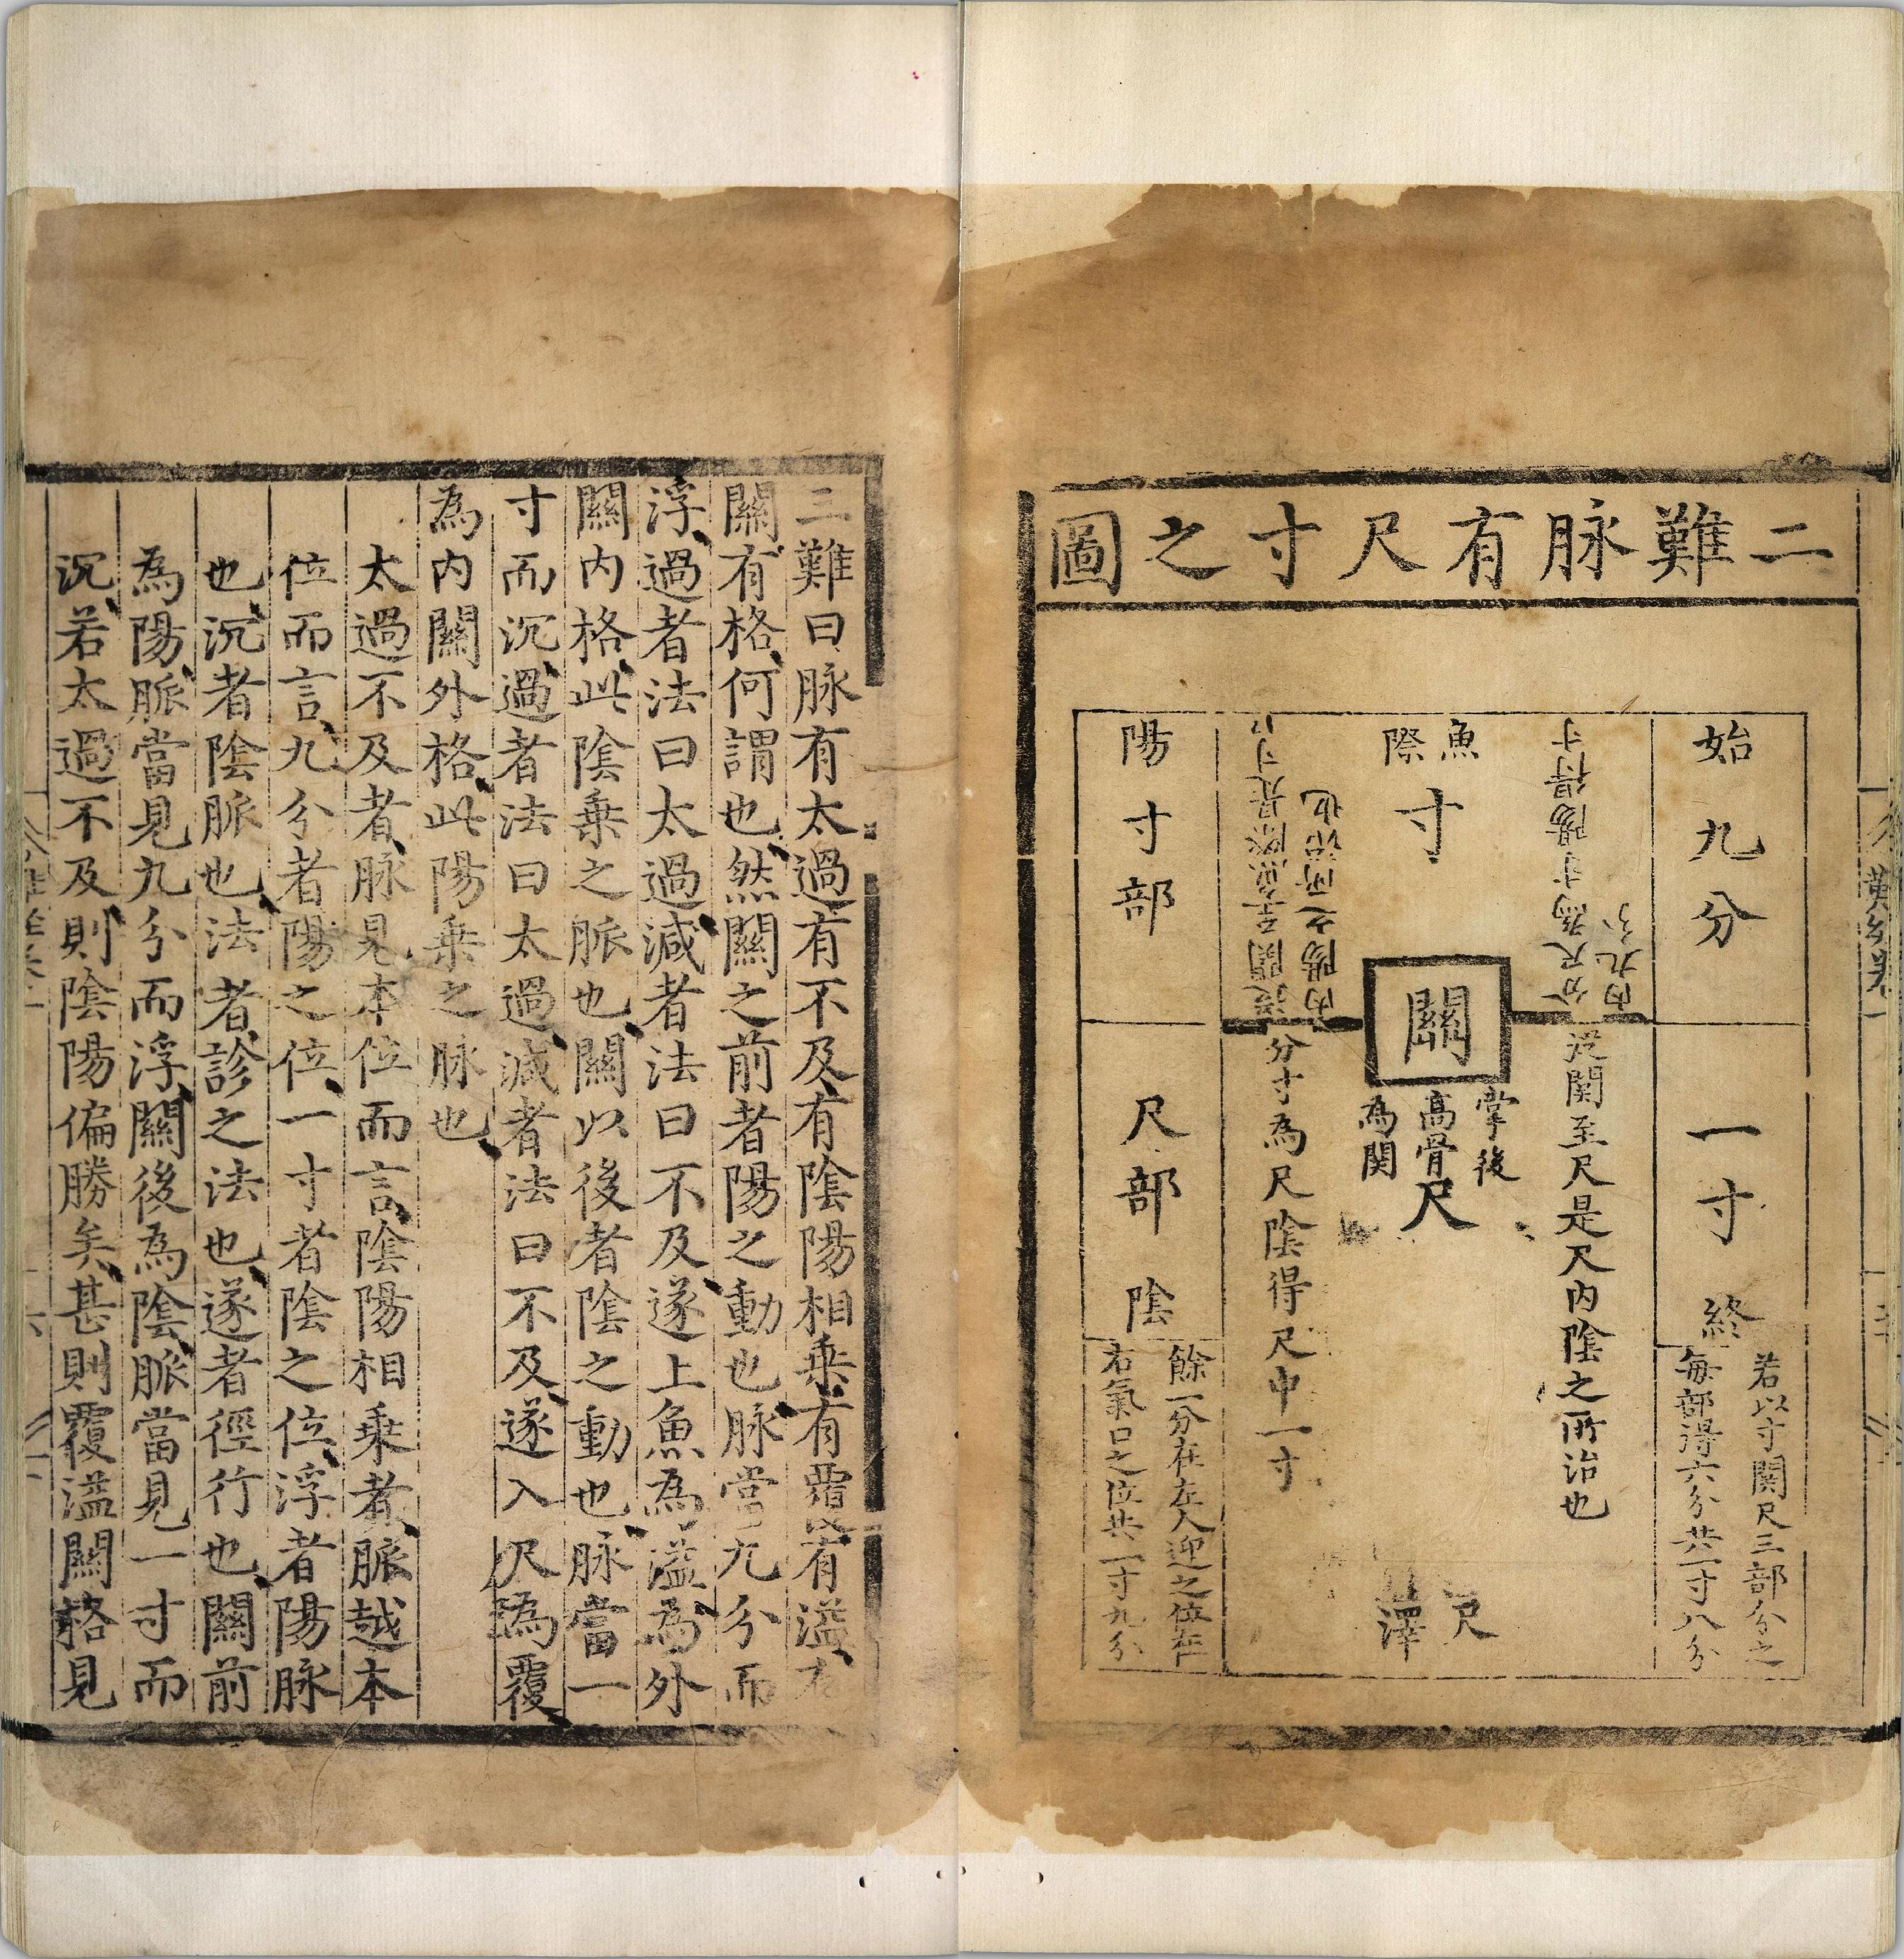 二難脉有尺寸之圖
始九分
一寸終
若以寸関尺三部分之
每部得六分共一寸八分
分尺為寸陽得寸
内九分
從関至尺是尺内陰之所治也
魚際
寸
關
掌後
高骨
為関
尺
尺澤
從関至魚際是寸口
内陽之所治也
分寸為尺陰得尺中一寸
陽寸部
尺部陰
餘一分在左人迎之位在
右氣口之位共一寸九分
三難曰脉有太過有不及有陰陽相乗有覆有溢有
關有格何謂也然關之前者陽之動也脉當九分而
浮過者法曰太過減者法曰不及遂上魚為溢為外
關内格此陰乗之脈也關以後者陰之動也脉當一
寸而沉過者法曰太過減者法曰不及遂入尺為覆
為内關外格此陽乗之脉也
太過不及者脉見本位而言陰陽相乗者脈越本
位而言九分者陽之位一寸者陰之位浮者陽脉
也沉者陰脈也法者診之法也遂者徑行也關前
為陽脈當見九分而浮關後為陰脈當見一寸而
沉若太過不及則陰陽偏勝矣甚則覆溢關格見